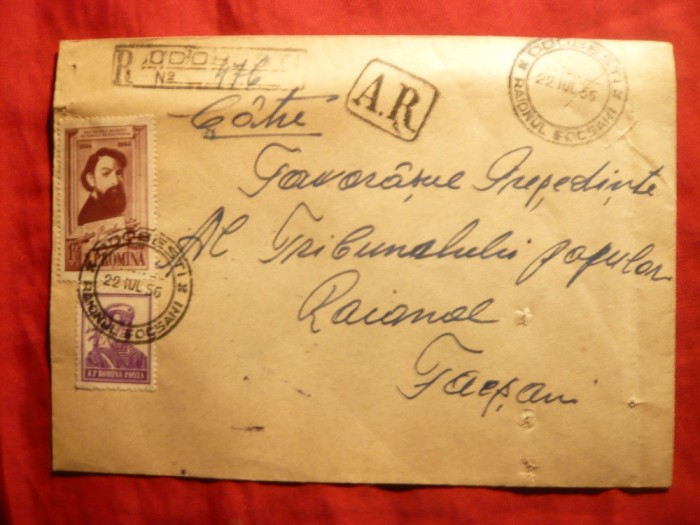 R
No 476
A.R.
ODOBEȘTI
22 IUL 56
RAIONUL FOCȘANI
Către
Tovarășul Președinte
Al Tribunalului popular
Raional
Focșani
1864 1964
R.P. ROMINA
ODOBEȘTI
22 IUL 56
RAIONUL FOCȘANI
R.P. ROMINA POSTA